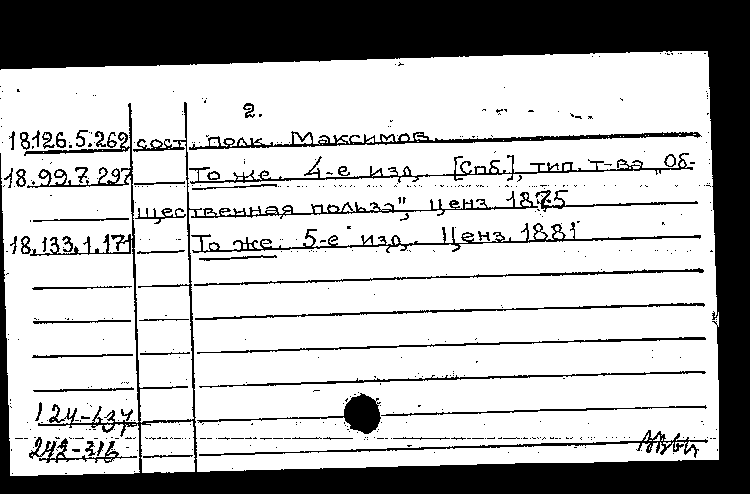 2.
18.126.5.262 сост. полк. Максимов.
18.99.7.297 То же. 4-е изд. [Спб.], тип. т-ва „Об-
щественная польза", ценз. 1875
18.133.1.171 То же. 5-е изд. Ценз. 1881
124-637
242-316